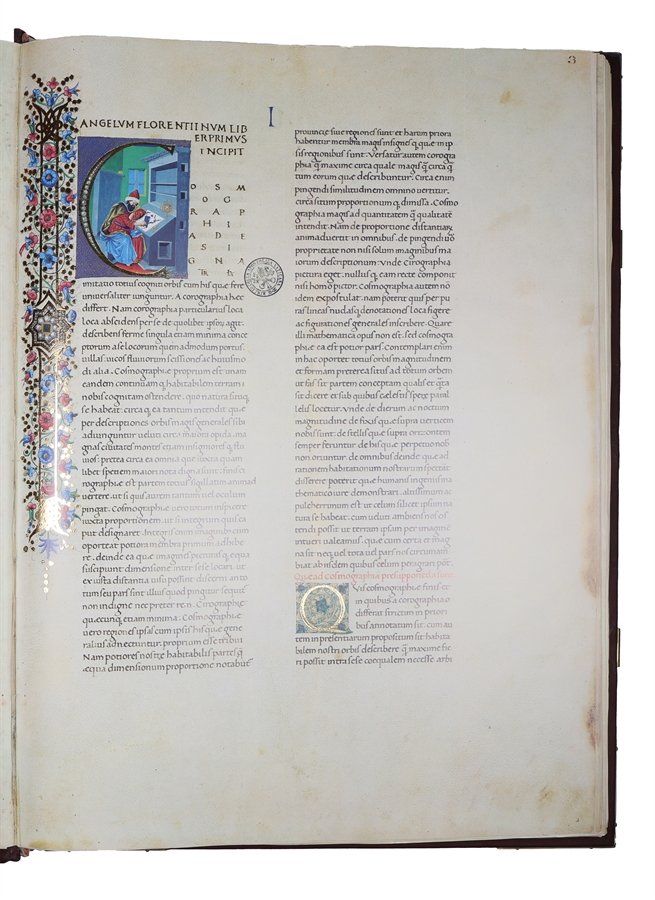 3
I
ANGELVM FLORENTINVM LIB
ERPRIMVS
INCIPIT
C
O S M
O G
R A P
H I
A D E
S I
G N A
imitatio totius cogniti orbis cum his quę fere
universaliter iunguntur. A corographia hęc
differt. Nam corographia particularius loca
loca abscidens per se de quolibet ipsorum agit.
describens ferme singula etiam minima conce
ptorum a se locorum quem admodum portus.
uillas. uicos fluuiorum scissiones ac huiusmo
di alia. Cosmographię proprium est unam
eandem continuamque habitabilem terram
nobis cognitam ostendere. quo natura situque
se habeat. circa ea tantum intendit quę
per descriptiones orbis magis generales sibi
adiunguntur uelut circa maiora opida. ma
gnas ciuitates montes etiam insigniores flu
uios: pretea circa ea omnia quę iuxta quam
libet spetiem maiori nota digna sunt. finis
rographię est partem totius sigillatim animad
vertere. ut si quis aurem tantum uel oculum
pingat. Cosmographię uero totum inspicere
iuxta proportionem. ut si integrum quis ca
put designaret. Integris enim imaginibus cum
oporteat potiora membra primum adhibe
re. deinde ea quę imagines picturasque equa
suscipiunt dimensione inter se se locari. ut
ex iusta distantia uisu possint discerni an to
tum seu pars sint illius quod pingitur sequitur
non indigne nec preter rem. Cirographię
quęcunque etiam minima. Cosmographię
uero regiones ipsas cum ipsis hisque quę gene
ralius adnectuntur. proprium esse tribui
Nam potiores nostrę habitabilis partesque
ęqua dimensionum proportione notabuntur
provincię siue regiones sunt et harum priora
habentur membra magis insignesque quę in ip
sis regionibus sunt. Versatur autem corogra
phia maxime circa quale magis quam circa quan
tum eorum quę describuntur. circa enim
pingendi similitudinem omnino uertitur.
circa situm proportionum dimissa. Cosmo
graphia magis ad quantitatem quam qualitatem
intendit. Nam de proportione distantiarum
animaduertit in omnibus. de pingendi uero
proprietate non nisi solum imaginibus ma
iorum descriptionum. Vnde Cirographia
pictura eget. nullusque eam recte componit
nisi homo pictor. Cosmographia autem non
idem expostulat. nam potent quis per pu
ras lineas nudasque denotationes loca figere
ac figurationes generales inscribere. Quare
illi mathematica opus non est. sed cosmogra
phię ea est potior pars. Contemplari enim
in hac oportet totius orbis magnitudinem
et formam preterea situs ad totum orbem
ut fas sit partem conceptam qualis et quanta
sit dicere et sub quibus cęlestis sperę paral
lelis locetur. Vnde de dierum ac noctium
magnitudine de fixis quę supra uerticem
nobis sunt. de stellis quę supra orizontem
semper feruntur de hisque perpetuo nob
non oriuntur de omnibus denique quę ad
rationem habitationum nostrarum spectant
differere poterit quę humanis ingeniis ma
thematice iure demonstrari. altissimum ac
pulcherrimum est ut cęlum silicet ipsum na
tura se habeat. cum ueluti ambiens nos os
tendi possit ut terram ipsam per imaginem
intueri ualeamus. quę cum certa et mag
na sit neque uel tota uel pars nos circumam
biat ab iisdem quibus cęlum peragrari pot.
Quę ad cosmographiam presupponenda sunt
Q
Vis cosmographię finis et
in quibus a corographia
differat strictim in priori
bus annotatum sit. cum au
tem in presentiarum propositum sit habita
bilem nostri orbis describere quam maxime fie
ri possit intra sese coequalem necesse arbi